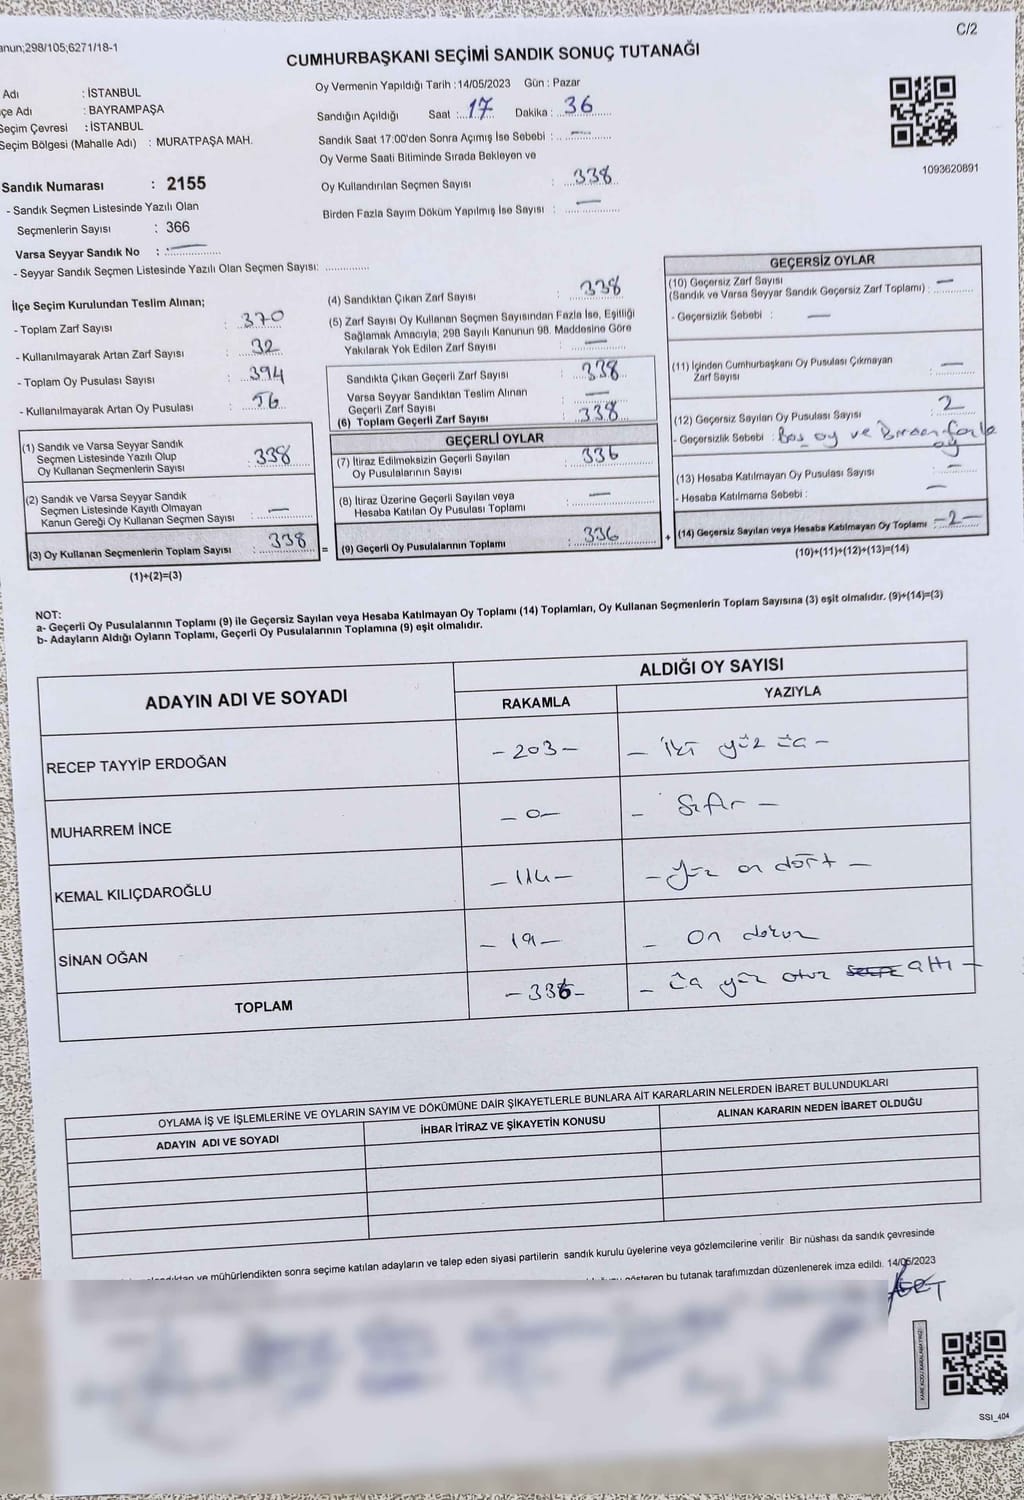 anun;298/105;6271/18-1
C/2
CUMHURBAŞKANI SEÇİMİ SANDIK SONUÇ TUTANAĞI
Adı : İSTANBUL
çe Adı : BAYRAMPAŞA
Seçim Çevresi : İSTANBUL
Seçim Bölgesi (Mahalle Adı) : MURATPAŞA MAH.
Sandık Numarası : 2155
- Sandık Seçmen Listesinde Yazılı Olan
Seçmenlerin Sayısı : 366
Varsa Seyyar Sandık No : —
- Seyyar Sandık Seçmen Listesinde Yazılı Olan Seçmen Sayısı: ..............
Oy Vermenin Yapıldığı Tarih :14/05/2023 Gün : Pazar
Sandığın Açıldığı Saat :..17 Dakika : 36
Sandık Saat 17:00'den Sonra Açımış İse Sebebi : —
Oy Verme Saati Bitiminde Sırada Bekleyen ve
Oy Kullandırılan Seçmen Sayısı : 338
Birden Fazla Sayım Döküm Yapılmış İse Sayısı : —
1093620891
İlçe Seçim Kurulundan Teslim Alınan;
- Toplam Zarf Sayısı : 370
- Kullanılmayarak Artan Zarf Sayısı : 32
- Toplam Oy Pusulası Sayısı : 394
- Kullanılmayarak Artan Oy Pusulası : 56
(1) Sandık ve Varsa Seyyar Sandık
Seçmen Listesinde Yazılı Olup
Oy Kullanan Seçmenlerin Sayısı : 338
(2) Sandık ve Varsa Seyyar Sandık
Seçmen Listesinde Kayıtlı Olmayan
Kanun Gereği Oy Kullanan Seçmen Sayısı : —
(3) Oy Kullanan Seçmenlerin Toplam Sayısı : 338
(1)+(2)=(3)
=
(4) Sandıktan Çıkan Zarf Sayısı : 338
(5) Zarf Sayısı Oy Kullanan Seçmen Sayısından Fazla İse, Eşitliği
Sağlamak Amacıyla, 298 Sayılı Kanunun 98. Maddesine Göre
Yakılarak Yok Edilen Zarf Sayısı : —
Sandıkta Çıkan Geçerli Zarf Sayısı : 338
Varsa Seyyar Sandıktan Teslim Alınan
Geçerli Zarf Sayısı : —
(6) Toplam Geçerli Zarf Sayısı : 338
GEÇERLİ OYLAR
(7) İtiraz Edilmeksizin Geçerli Sayılan
Oy Pusulalarının Sayısı : 336
(8) İtiraz Üzerine Geçerli Sayılan veya
Hesaba Katılan Oy Pusulası Toplamı : —
(9) Geçerli Oy Pusulalarının Toplamı : 336
+
GEÇERSİZ OYLAR
(10) Geçersiz Zarf Sayısı
(Sandık ve Varsa Seyyar Sandık Geçersiz Zarf Toplamı) : —
- Geçersizlik Sebebi : —
(11) İçinden Cumhurbaşkanı Oy Pusulası Çıkmayan
Zarf Sayısı : —
(12) Geçersiz Sayılan Oy Pusulası Sayısı : 2
- Geçersizlik Sebebi : Boş oy ve Birden fazla
oy
(13) Hesaba Katılmayan Oy Pusulası Sayısı : —
- Hesaba Katılmama Sebebi : —
(14) Geçersiz Sayılan veya Hesaba Katılmayan Oy Toplamı —2—
(10)+(11)+(12)+(13)=(14)
NOT:
a- Geçerli Oy Pusulalarının Toplamı (9) ile Geçersiz Sayılan veya Hesaba Katılmayan Oy Toplamı (14) Toplamları, Oy Kullanan Seçmenlerin Toplam Sayısına (3) eşit olmalıdır. (9)+(14)=(3)
b- Adayların Aldığı Oyların Toplamı, Geçerli Oy Pusulalarının Toplamına (9) eşit olmalıdır.
ADAYIN ADI VE SOYADI
ALDIĞI OY SAYISI
RAKAMLA YAZIYLA
RECEP TAYYİP ERDOĞAN -203- - iki yüz üç -
MUHARREM İNCE -0- - Sıfır -
KEMAL KILIÇDAROĞLU -114- - Yüz on dört -
SİNAN OĞAN -19- - On dokuz
TOPLAM -336- - Üç yüz otuz altı -
OYLAMA İŞ VE İŞLEMLERİNE VE OYLARIN SAYIM VE DÖKÜMÜNE DAİR ŞİKAYETLERLE BUNLARA AİT KARARLARIN NELERDEN İBARET BULUNDUKLARI
ADAYIN ADI VE SOYADI İHBAR İTİRAZ VE ŞİKAYETİN KONUSU ALINAN KARARIN NEDEN İBARET OLDUĞU
ve mühürlendikten sonra seçime katılan adayların ve talep eden siyasi partilerin sandık kurulu üyelerine veya gözlemcilerine verilir Bir nüshası da sandık çevresinde
gösteren bu tutanak tarafımızdan düzenlenerek imza edildi. 14/05/2023
SSI_404